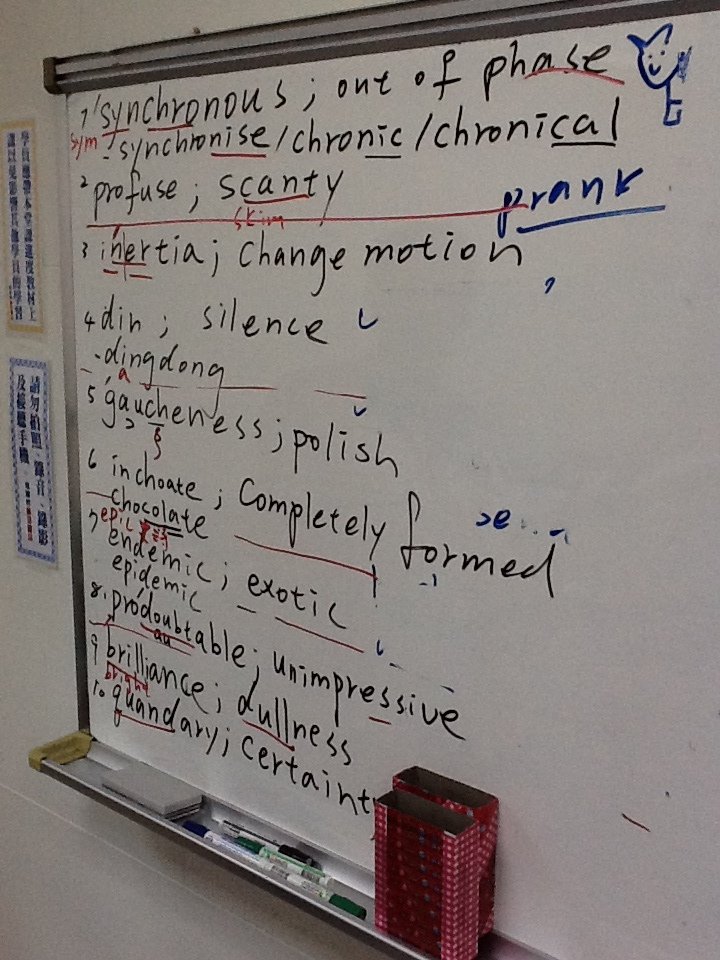 1 synchronous ; out of phase
sym - synchronise / chronic / chronical
2 profuse ; scanty
skim
prank
3 inertia ; change motion
4 din ; silence
- dingdong
a
5 gaucheness ; polish
6 inchoate ; completely formed
chocolate
epic
7 endemic ; exotic
epidemic
8. prodoubtable ; unimpressive
au
9 brilliance ; dullness
bright
10 quandary ; certainty
學員應帶本堂課進度教材上
課以免影響其他學員的學習
請勿拍照、錄音、錄影
及接聽手機